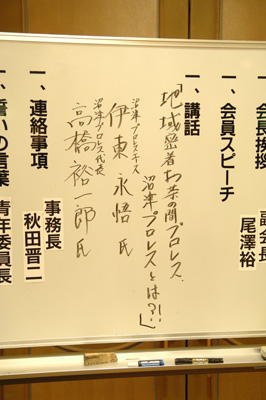 会長挨拶
副会長
尾澤裕
一、会員スピーチ
一、講話
「地域密着お茶の間プロレス
沼津プロレスとは?!」
沼津プロレスキス
伊東永悟氏
沼津プロレス代表
高橋裕一郎氏
一、連絡事項
事務長
秋田晋二
一、誓いの言葉
青年委員長